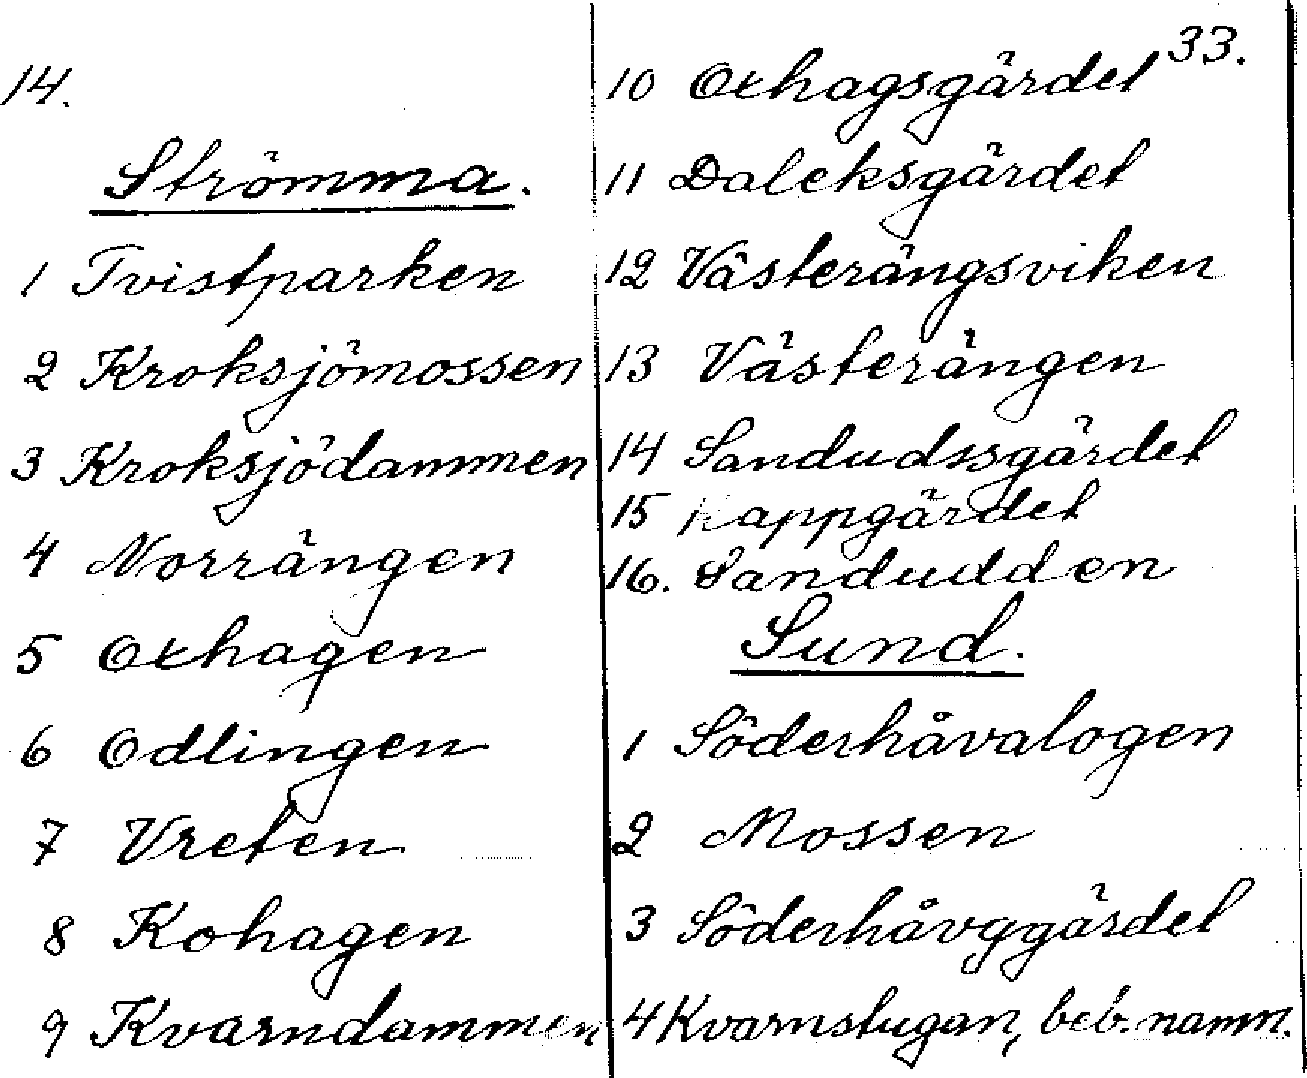 14.
Strömma.
1 Tvistparken
2 Kroksjömossen
3 Kroksjödammen
4 Norrängen
5 Oxhagen
6 Odlingen
7 Vreten
8 Kohagen
9 Kvarndammen
33.
10 Oxhagsgärdet
11 Daleksgärdet
12 Västerängsviken
13 Västerängen
14 Sandudssgärdet
15 Kappgärdet
16. Sandudden
Sund.
1 Söderhåvalogen
2 Mossen
3 Söderhåvggärdet
4 Kvarnstugan, beb. namn.